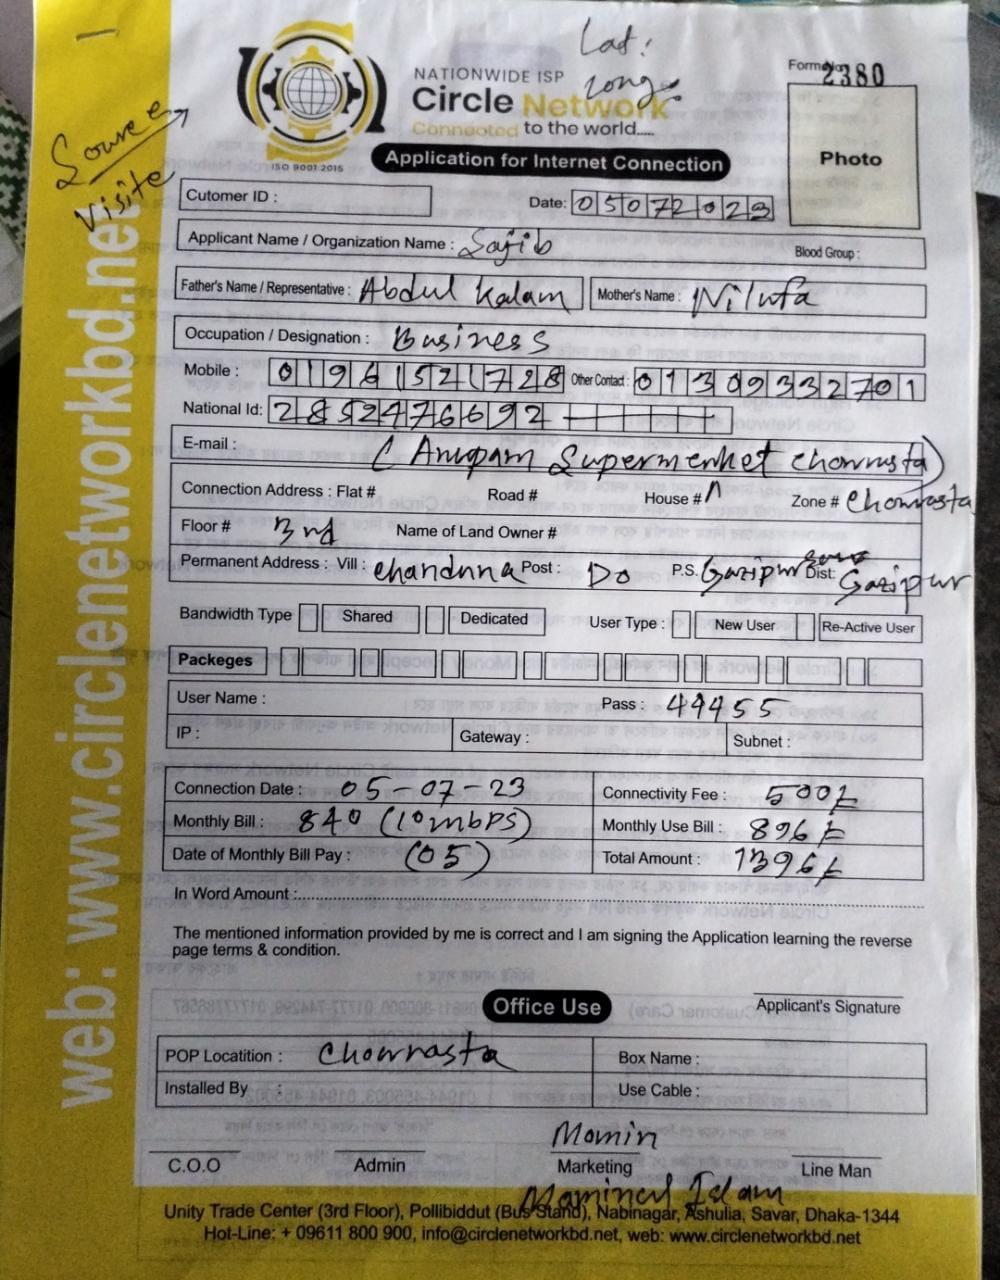 Lat:
Long:
Form No 2380
NATIONWIDE ISP
Circle Network
Connected to the world.....
ISO 9001:2015
Source
Visite
Application for Internet Connection
Photo
Cutomer ID :
Date: 05072023
Applicant Name / Organization Name : Sajib
Blood Group :
Father's Name / Representative : Abdul Kalam Mother's Name : Nilufa
Occupation / Designation : Business
Mobile : 01961521728 Other Contact : 01309332701
National Id: 2852476692
E-mail : (Anupam Supermerket chowrasta)
Connection Address : Flat # Road # House # Zone # Chowrasta
Floor # 3rd Name of Land Owner #
Permanent Address : Vill : chandnna Post : Do P.S. Gazipur Dist: Gazipur
Bandwidth Type Shared Dedicated User Type : New User Re-Active User
Packeges
User Name : Pass : 44455
IP : Gateway : Subnet :
Connection Date : 05-07-23 Connectivity Fee : 500/=
Monthly Bill : 840 (10mbps) Monthly Use Bill : 896/=
Date of Monthly Bill Pay : (05) Total Amount : 1396/=
In Word Amount :
The mentioned information provided by me is correct and I am signing the Application learning the reverse
page terms & condition.
Office Use
Applicant's Signature
POP Locatition : Chowrasta Box Name :
Installed By : Use Cable :
Momin
C.O.O Admin Marketing Line Man
Mominul Islam
Unity Trade Center (3rd Floor), Pollibiddut (Bus Stand), Nabinagar, Ashulia, Savar, Dhaka-1344
Hot-Line: + 09611 800 900, info@circlenetworkbd.net, web: www.circlenetworkbd.net
web: www.circlenetworkbd.net